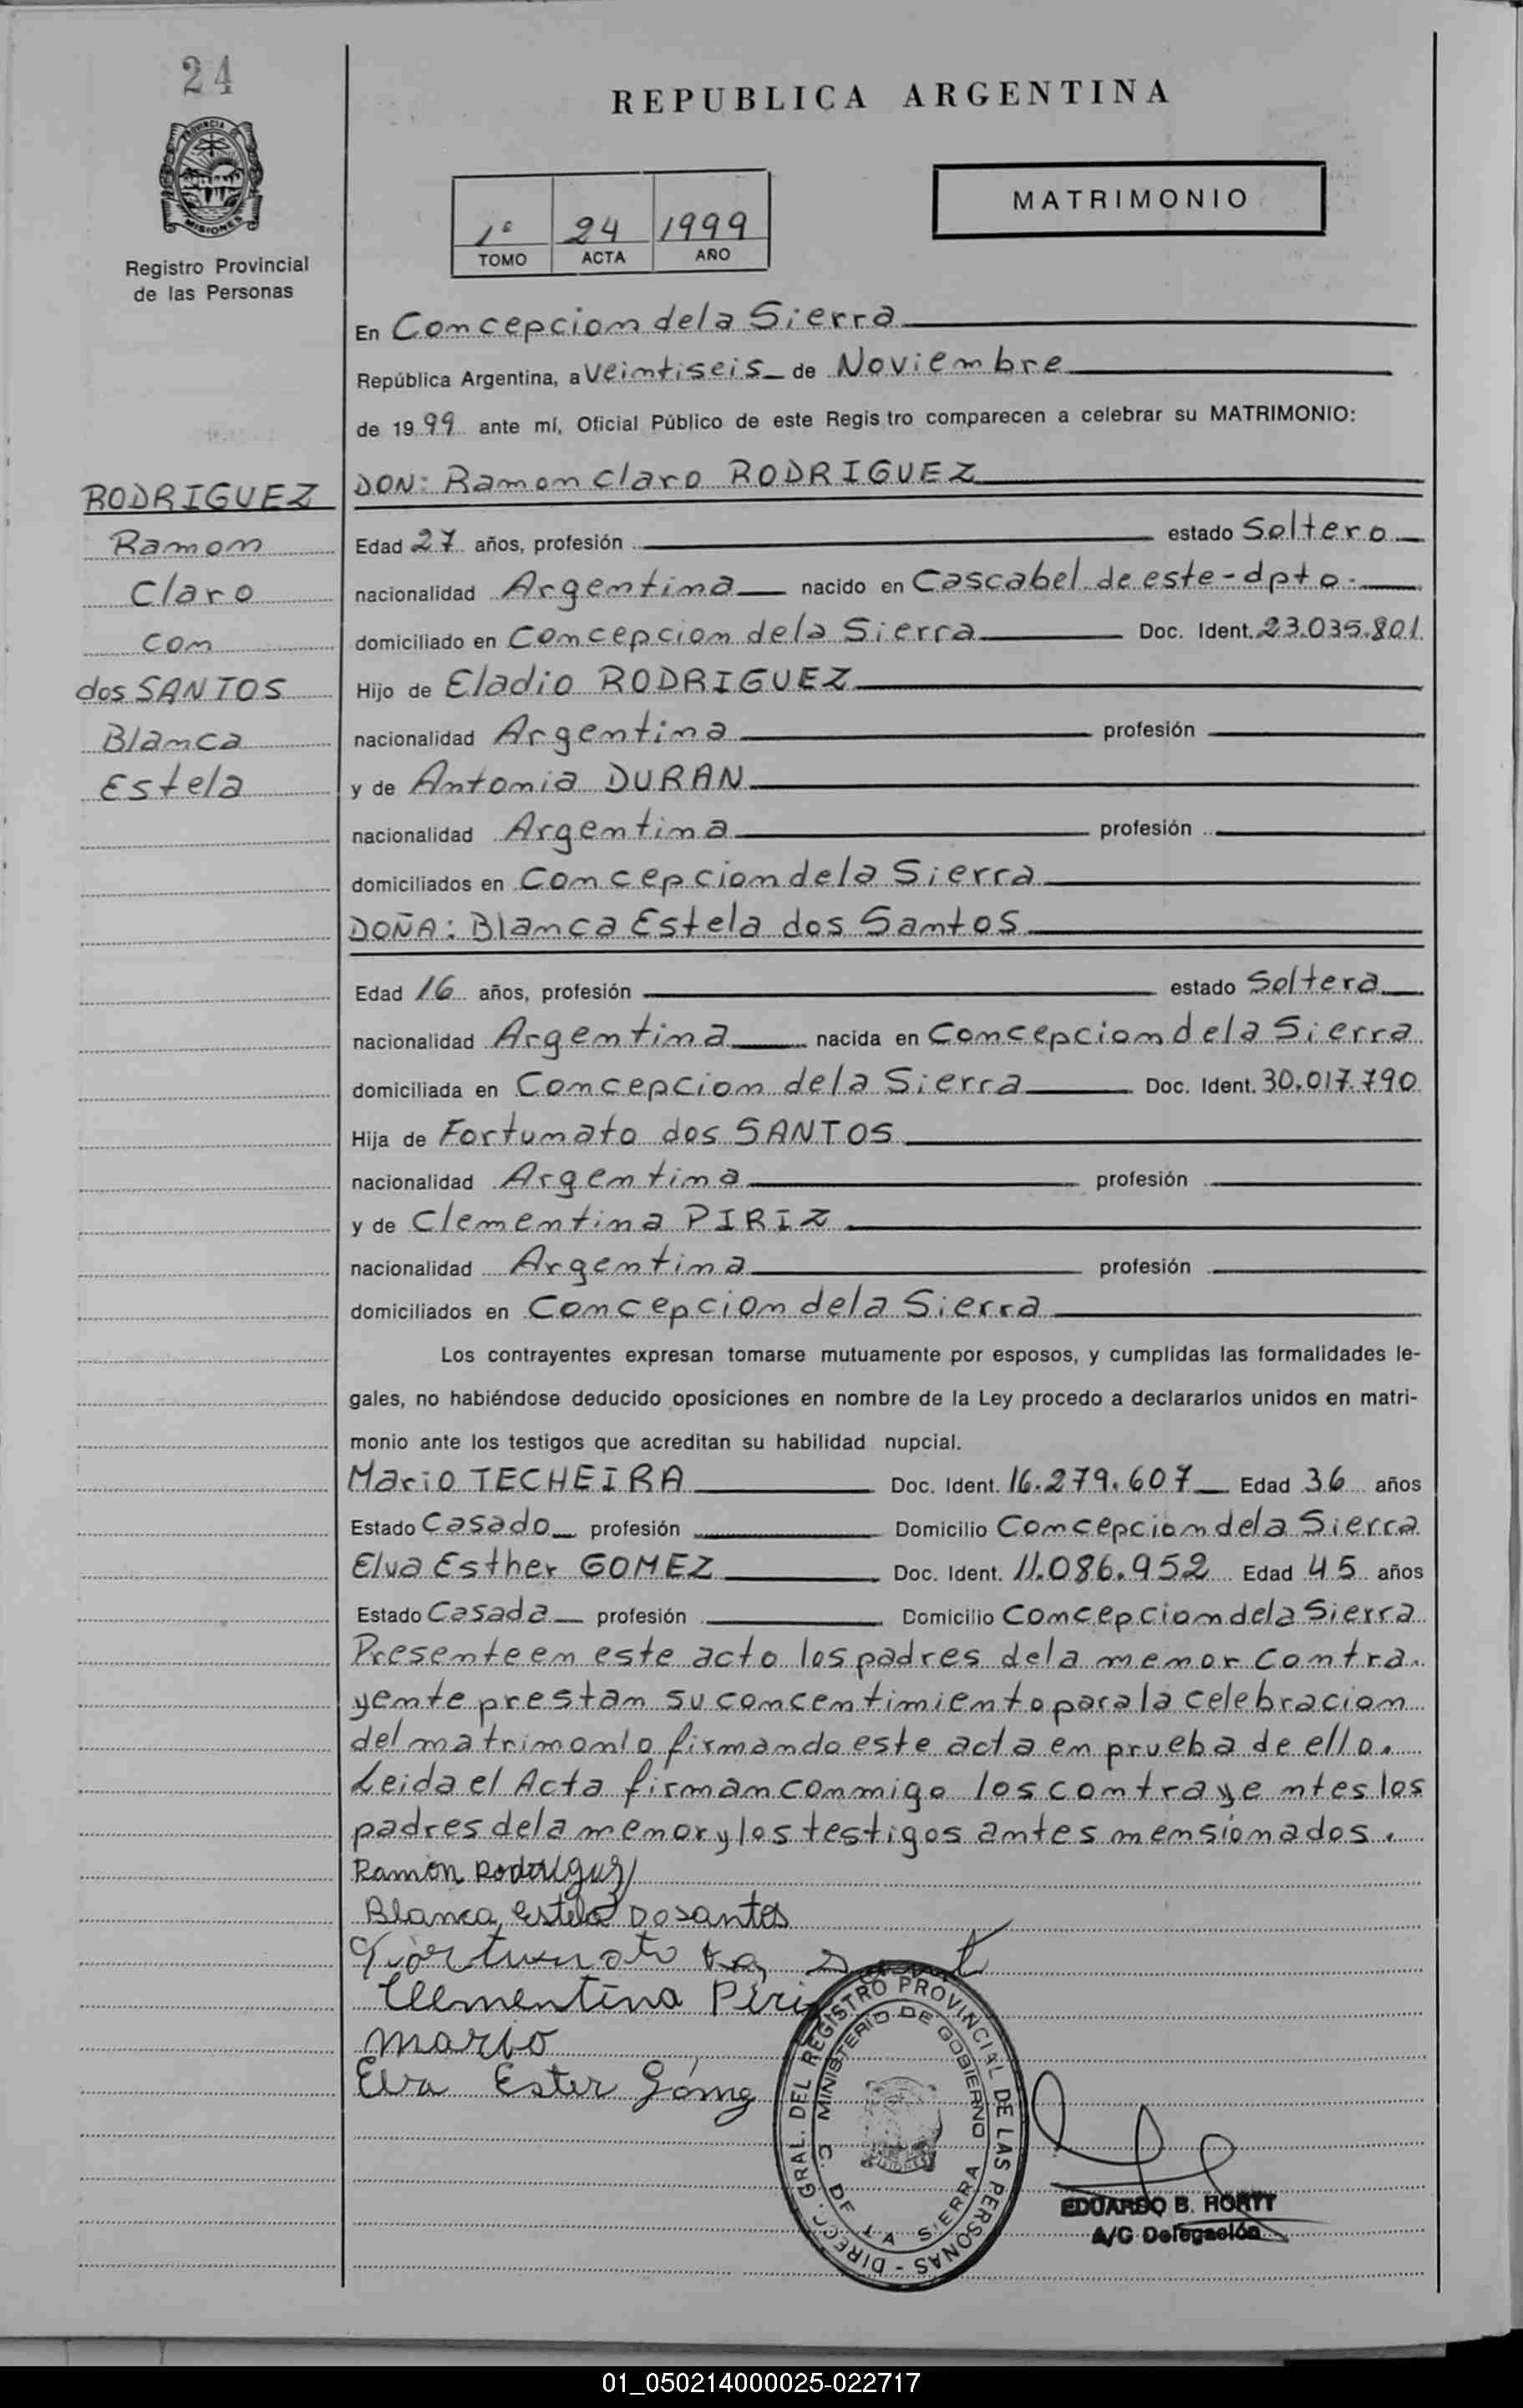 24
REPUBLICA ARGENTINA
PROVINCIA DE
MISIONES
Registro Provincial
de las Personas
1º 24 1999
TOMO ACTA AÑO
MATRIMONIO
En Concepcion de la Sierra
República Argentina, a Veintiseis de Noviembre
de 1999 ante mí, Oficial Público de este Regis tro comparecen a celebrar su MATRIMONIO:
RODRIGUEZ
Ramon
Claro
con
dos SANTOS
Blanca
Estela
DON: Ramon Claro RODRIGUEZ
Edad 27 años, profesión estado Soltero
nacionalidad Argentina nacido en Cascabel de este-dpto.
domiciliado en Concepcion de la Sierra Doc. Ident. 23.035.801
Hijo de Eladio RODRIGUEZ
nacionalidad Argentina profesión
y de Antonia DURAN
nacionalidad Argentina profesión
domiciliados en Concepcion de la Sierra
DOÑA: Blanca Estela dos Santos
Edad 16 años, profesión estado Soltera
nacionalidad Argentina nacida en Concepcion de la Sierra
domiciliada en Concepcion de la Sierra Doc. Ident. 30.017.790
Hija de Fortunato dos SANTOS
nacionalidad Argentina profesión
y de Clementina PIRIZ
nacionalidad Argentina profesión
domiciliados en Concepcion de la Sierra
Los contrayentes expresan tomarse mutuamente por esposos, y cumplidas las formalidades le-
gales, no habiéndose deducido oposiciones en nombre de la Ley procedo a declararlos unidos en matri-
monio ante los testigos que acreditan su habilidad nupcial.
Mario TECHEIRA Doc. Ident. 16.279.607 Edad 36 años
Estado Casado profesión Domicilio Concepcion de la Sierra
Elva Esther GOMEZ Doc. Ident. 11.086.952 Edad 45 años
Estado Casada profesión Domicilio Concepcion de la Sierra
Presente en este acto los padres de la menor contra.
yente prestan su concentimiento para la celebracion
del matrimonio firmando este acta en prueba de ello.
Leida el Acta firman conmigo los contrayentes los
padres de la menor y los testigos antes mensionados.
Ramón Rodriguez
Blanca Estela Dosantos
Fortunato
Clementina Piriz
mario
Elva Ester Gómez
DIRECC. GRAL. DEL REGISTRO PROVINCIAL DE LAS PERSONAS -
MINISTERIO DE GOBIERNO
C. DE LA SIERRA
EDUARDO B. HORTT
A/C Delegación
01_050214000025-022717